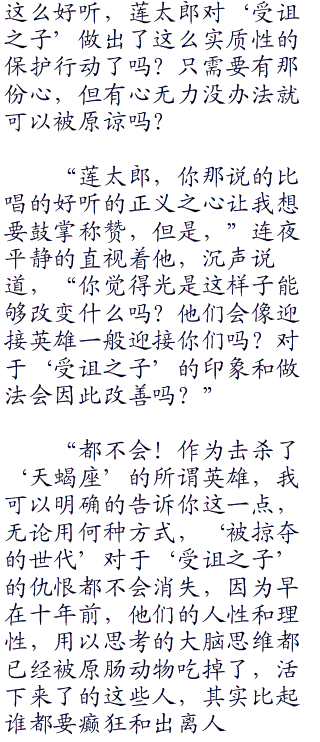 这么好听，莲太郎对‘受诅
之子’做出了这么实质性的
保护行动了吗？只需要有那
份心，但有心无力没办法就
可以被原谅吗？
“莲太郎，你那说的比
唱的好听的正义之心让我想
要鼓掌称赞，但是，”连夜
平静的直视着他，沉声说
道，“你觉得光是这样子能
够改变什么吗？他们会像迎
接英雄一般迎接你们吗？对
于‘受诅之子’的印象和做
法会因此改善吗？”
“都不会！作为击杀了
‘天蝎座’的所谓英雄，我
可以明确的告诉你这一点，
无论用何种方式，‘被掠夺
的世代’对于‘受诅之子’
的仇恨都不会消失，因为早
在十年前，他们的人性和理
性，用以思考的大脑思维都
已经被原肠动物吃掉了，活
下来了的这些人，其实比起
谁都要癫狂和出离人